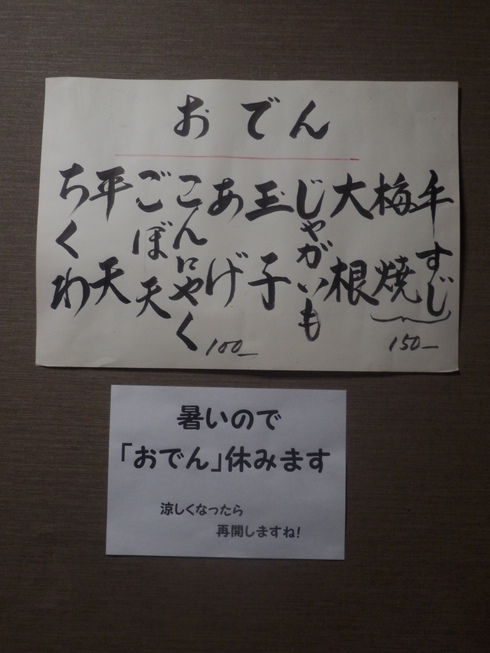 おでん
牛すじ
梅焼
150-
大根
じゃがいも
玉子
あげ
100-
こんにゃく
ごぼ天
平天
ちくわ
暑いので
「おでん」休みます
涼しくなったら
再開しますね!